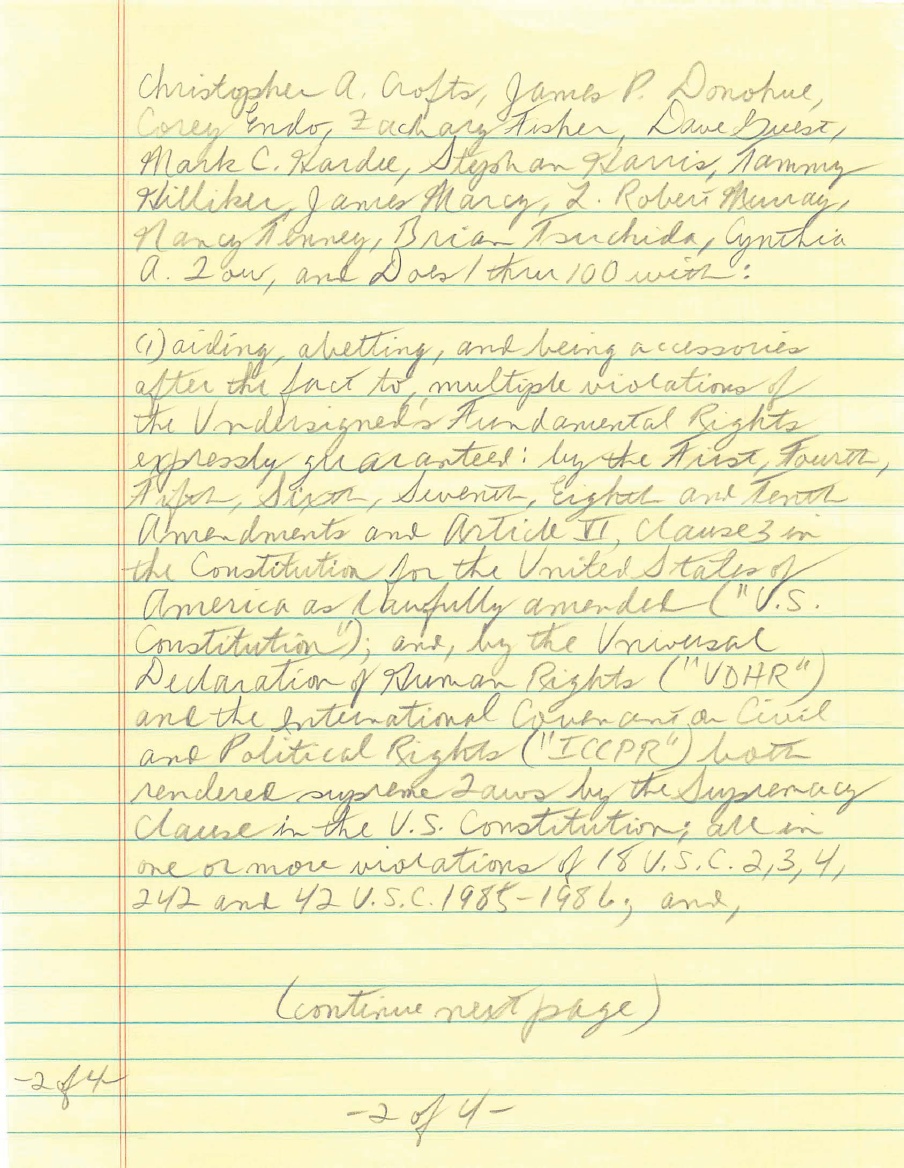 Christopher A. Crofts, James P. Donohue,
Corey Endo, Zachary Fisher, Dave Guest,
Mark C. Hardee, Stephan Harris, Tammy
Hilliker, James Marcy, L. Robert Murray,
Nancy Tenney, Brian Tsuchida, Cynthia
A. Zow, and Does 1 thru 100 with:
(1) aiding, abetting, and being accessories
after the fact to, multiple violations of
the Undersigned's Fundamental Rights
expressly guaranteed: by the First, Fourth,
Fifth, Sixth, Seventh, Eighth and Tenth
Amendments and Article VI, Clause 3 in
the Constitution for the United States of
America as lawfully amended ("U.S.
Constitution"); and, by the Universal
Declaration of Human Rights ("UDHR")
and the International Covenant on Civil
and Political Rights ("ICCPR") both
rendered supreme Laws by the Supremacy
Clause in the U.S. Constitution; all in
one or more violations of 18 U.S.C. 2, 3, 4,
242 and 42 U.S.C. 1985-1986; and,
(continue next page)
-2 of 4-
-2 of 4-